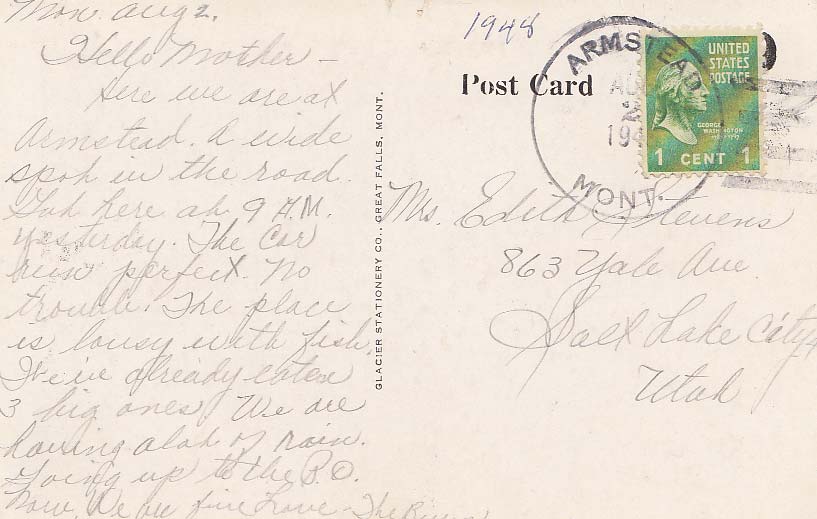 Mon. Aug 2.
Hello Mother -
Here we are at
Armstead. A wide
spot in the road.
Got here at 9 A.M.
yesterday. The car
run perfect. No
trouble. The place
is lousy with fish.
already eaten
3 big ones. We are
having a lot of rain.
Going up to the P.O.
now. We are fine Love - The
GLACIER STATIONERY CO., GREAT FALLS, MONT.
1948
Post Card
ARMSTEAD,
AU
2
19
MONT.
UNITED
STATES
POSTAGE
GEORGE
WASHINGTON
1 CENT 1
Mrs. Edith Stevens
863 Yale Ave.
Salt Lake City
Utah